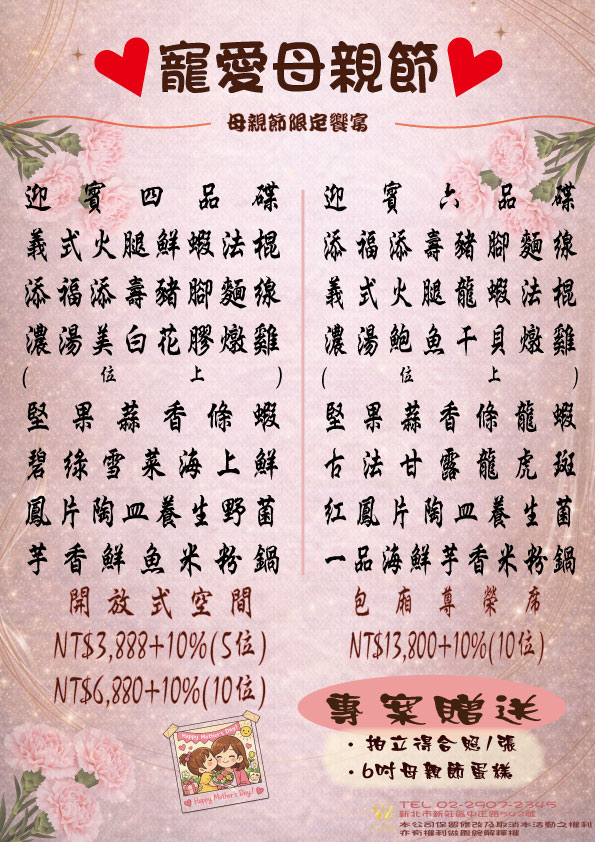 寵愛母親節
母親節限定饗宴
迎賓四品碟
義式火腿鮮蝦法棍
添福添壽豬腳麵線
濃湯美白花膠燉雞
(位上)
堅果蒜香條蝦
碧綠雪菜海上鮮
鳳片陶皿養生野菌
芋香鮮魚米粉鍋
開放式空間
NT$3,888+10%(5位)
NT$6,880+10%(10位)
迎賓六品碟
添福添壽豬腳麵線
義式火腿龍蝦法棍
濃湯鮑魚干貝燉雞
(位上)
堅果蒜香條龍蝦
古法甘露龍虎斑
紅鳳片陶皿養生菌
一品海鮮芋香米粉鍋
包廂尊榮席
NT$13,800+10%(10位)
專案贈送
・拍立得合照/張
・6吋母親節蛋糕
Happy Mother's Day!
Happy Mother's Day!
TEL 02-2907-2345
新北市新莊區中正路542號
本公司保留修改及取消本活動之權利
亦有權利做最終解釋權